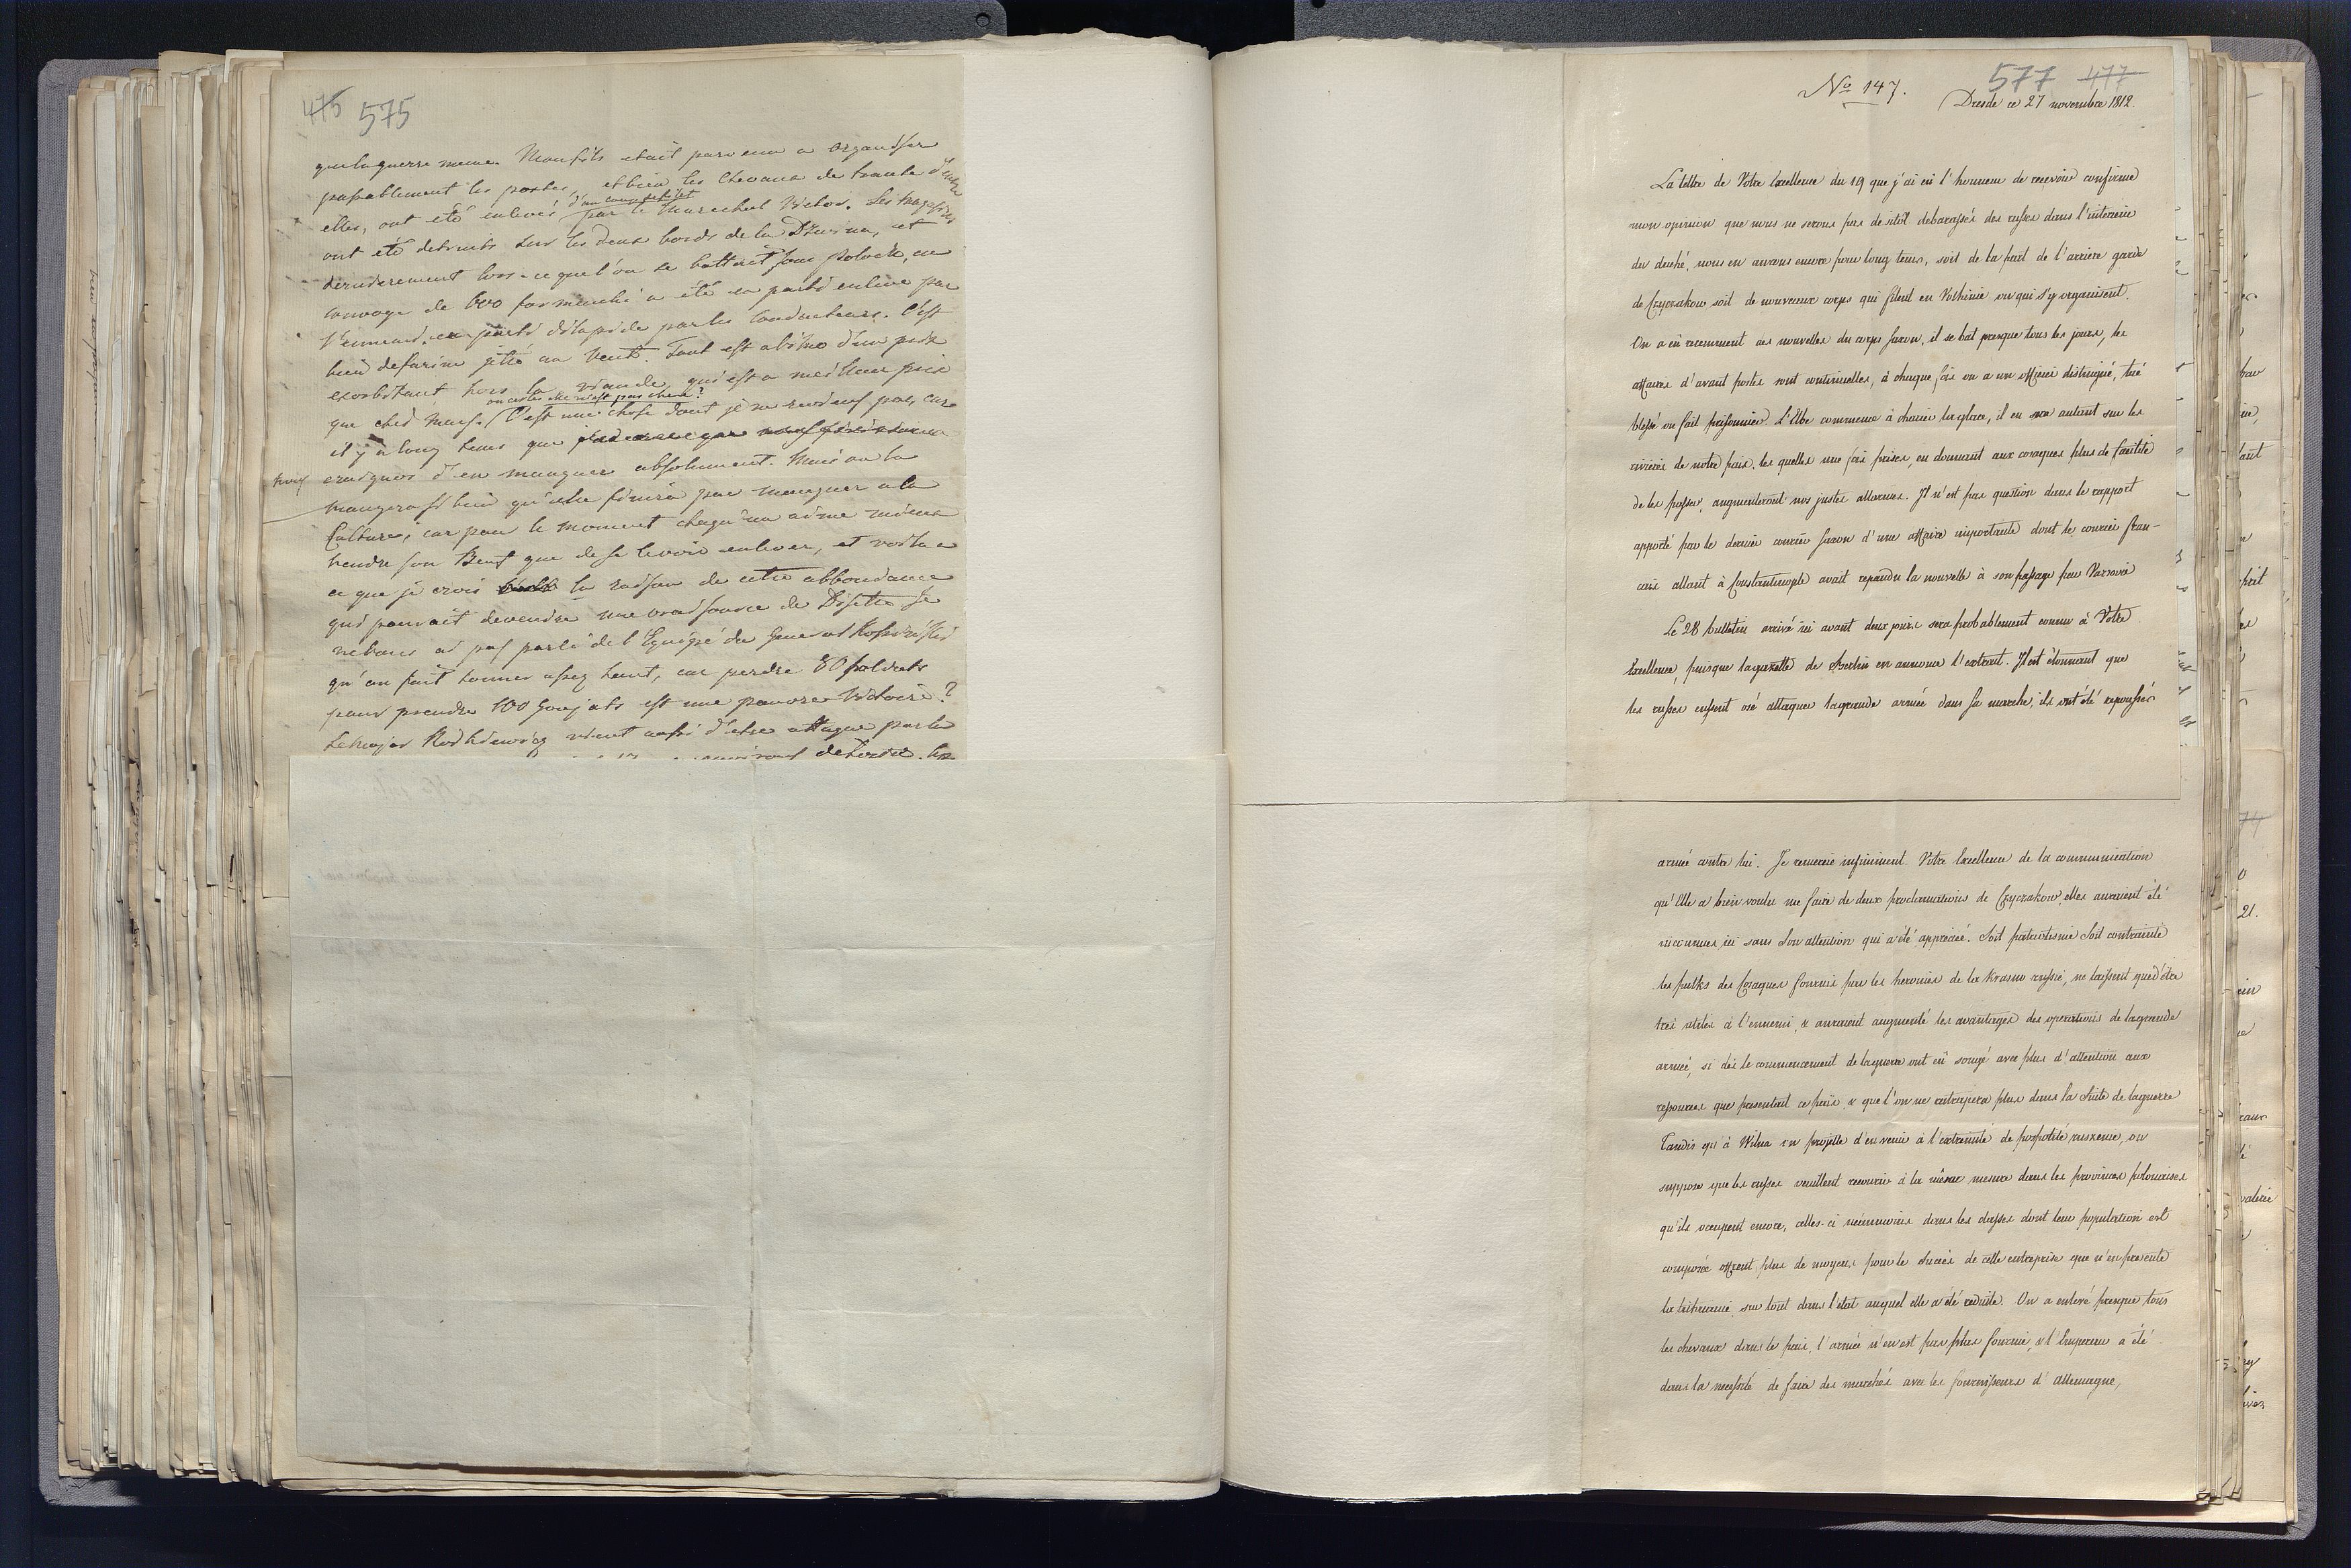 475 575
que la guerre meme. Mon fils etait parvenu a organiser
passablement les postes, et bien les Chevaux de trente d'entre
d'un coup de filet
elles, ont eté enlevés par le Marechal Victor. Les magasins
ont eté detruits sur les deux bords de la Dzwina, et
dernierement lors-ce que l'on se battait sous Polock, un
convoye de 600 a été en parti enlevé par
l'ennemi, en parti dilapidé par les Conducteurs. C'est
bien de farine jetté au Vent. Tout est abimé d'un prix
exorbitant hors la viande, qui est a meilleur prix
ou certes elle n'est pas chere?
que ched nous. C'est une chose dont je ne reviens pas, car
il y a long tems que
nous craignos d'en manquer absolument. Mais on la
mangera si bien qu'elle finira par manquer a la
Culture, car pour le moment chaqu'un aime mieux
vendre son Bœuf que de se le voir enlever, et voila
ce que je crois la raison de cette abbondance
qui pourait devendre une vrai source de Disette. Je
ne vous ai pas parlé de l'Equipé du General
qu'on fait sonner assez haut, car perdre 80 soldats
pour prendre 100 Goujats est une pauvre Victoire?
Le Major vient aussi d'etre attaqué par les
environs de
No 147.
577 477
Dresde ce 27 novembre 1812.
La lettre de Votre Excellence du 19 que j'ai eü l'honneur de recevoir confirme
mon opinion que nous ne serons pas de sitôt debarassés des russes dans l'interieur
du duché, nous en aurons encore pour long tems, soit de la part de l'arriere garde
de Czyczakow soit de nouveaux corps qui filent en Volhinie ou qui s'y organisent.
On a eü recemment des nouvelles du corps saxon, il se bat presque tous les jours, les
affaires d'avant postes sont continuelles, à chaque fois on a un officier distingué, tué
blessé ou fait prisonnier. L'Elbe commence à charier la glace, il en sera autant sur les
rivieres de notre pais, les quelles une fois prises, en donnant aux cosaques plus de facilité
de les passer, augmenteront nos justes allarmes. Il n'est pas question dans le rapport
apporté par le dernier courrier saxon d'une affaire importante dont le courrier fran-
cais allant à Constantinople avait repandu la nouvelle à son passage par Varsovie
Le 28 bulletin arrivé ici avant deux jours sera probablement connu à Votre
Excellence, puisque la gazette de Berlin en annonce l'extrait. Il est étonnant que
les russes eussent osé attaquer la grande armée dans sa marche, ils ont été repoussés
armée contre lui. Je remercie infiniment Votre Excellence de la communication
qu'Elle a bien voulu me faire de deux proclamations de Czyczakow, elles auraient été
inconnues ici sans Son attention qui a été appreciée. Soit patriotisme Soit contrainte
les pulks des Cosaques fournis par les heronies de la Krasno russie, ne laissent que d'étre
tres utiles à l'ennemi, & auraient augmenté les avantages des operations de la grande
armée, si dès le commencement de la guerre ont eü songé avec plus d'attention aux
ressources que presentait ce pais & que l'on ne ratrapera plus dans la Suite de la guerre
Tandis qu'à Wilna on projette d'en venir à l'extremité de pospolité ruszenie, on
suppose que les russes veuillent recourir à la même mesure dans les provinces polonaises
qu'ils occupent encore, celles-ci néanmoins dans les classes dont leur population est
composée offrent plus de moyens pour le Succès de cette entreprise que n'en presente
la lithuanie sur tout dans l'état auquel elle a été reduite. On a enlevé presque tous
les chevaux dans le pais, l'armée n'en est pas plus fournie, & l'Empereur a été
dans la necessité de faire des marchés avec les fournisseurs d'Allemagne,